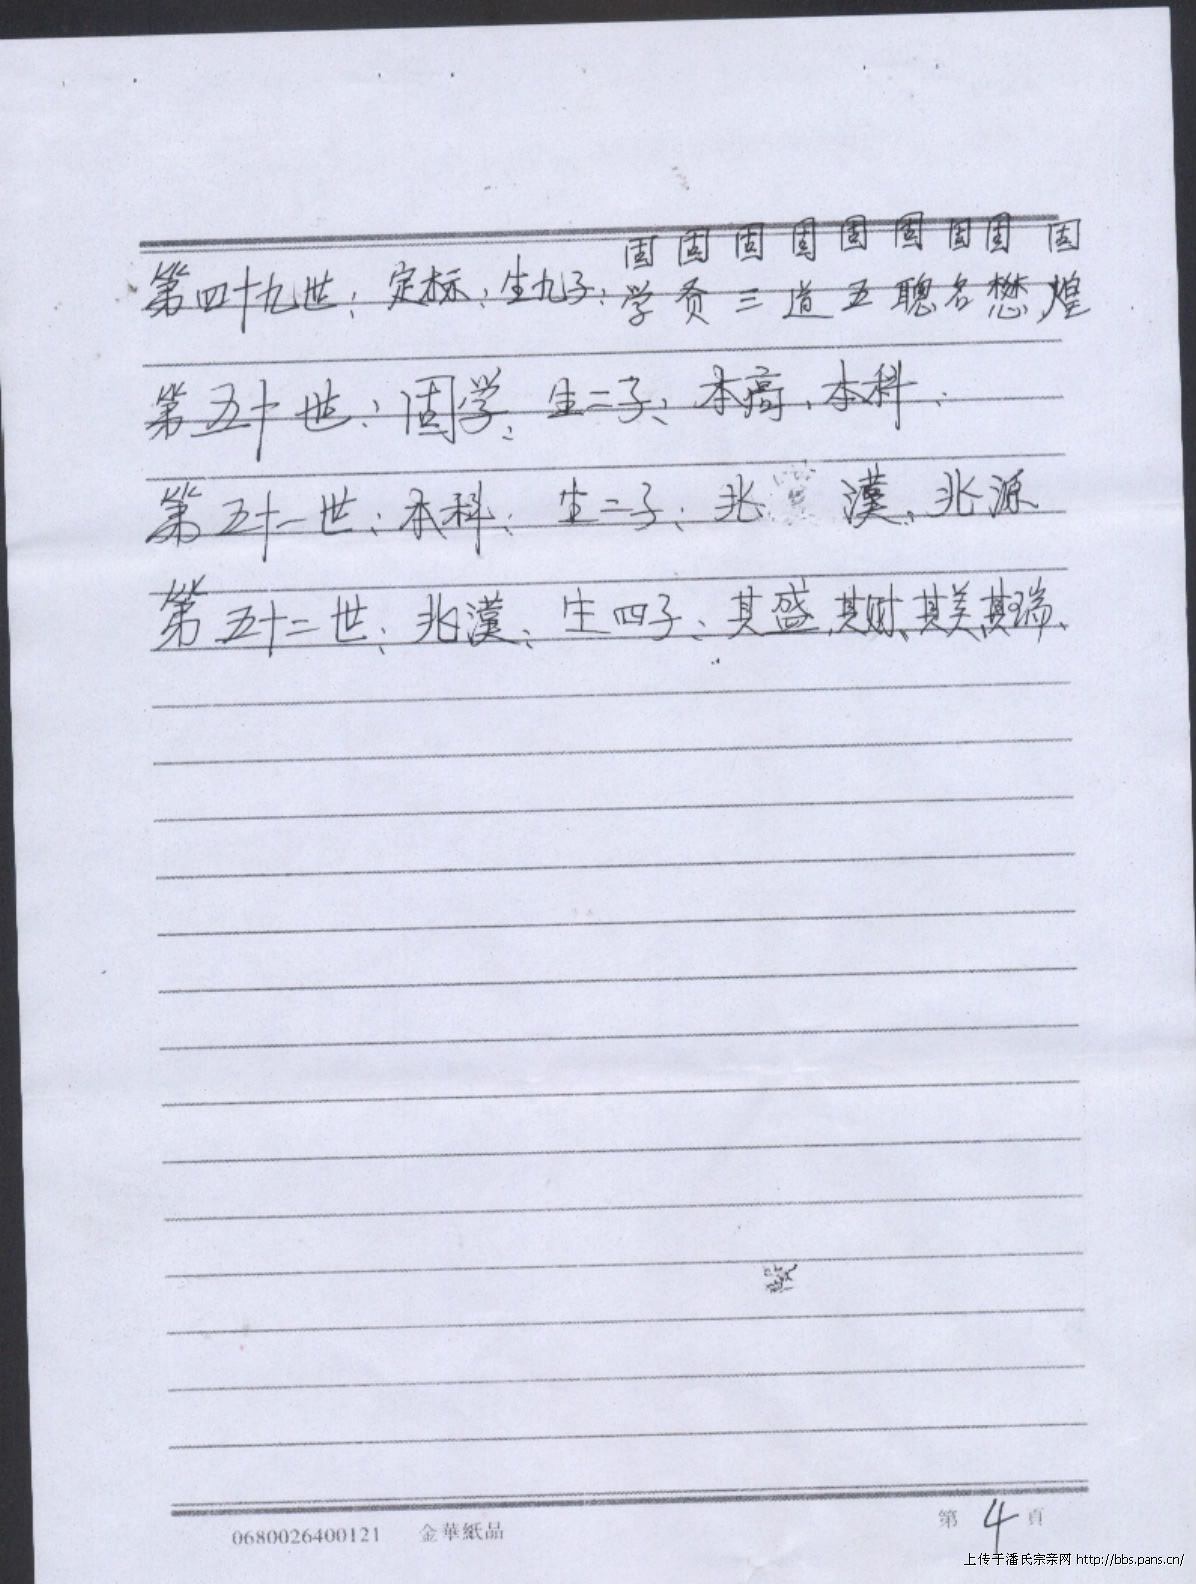 固 固 固 固 固 固 固 固 固
第四十九世：定标：生九子：学 贤 三 道 五 聰 名 懋 煌
第五十世：固学：生二子：本高、本科：
第五十一世：本科：生二子：兆 漢、兆源
第五十二世：兆漢：生四子：其盛、其财、其美、其瑞、
0680026400121 金華紙品 第 4 頁
上传于潘氏宗亲网 http://bbs.pans.cn/